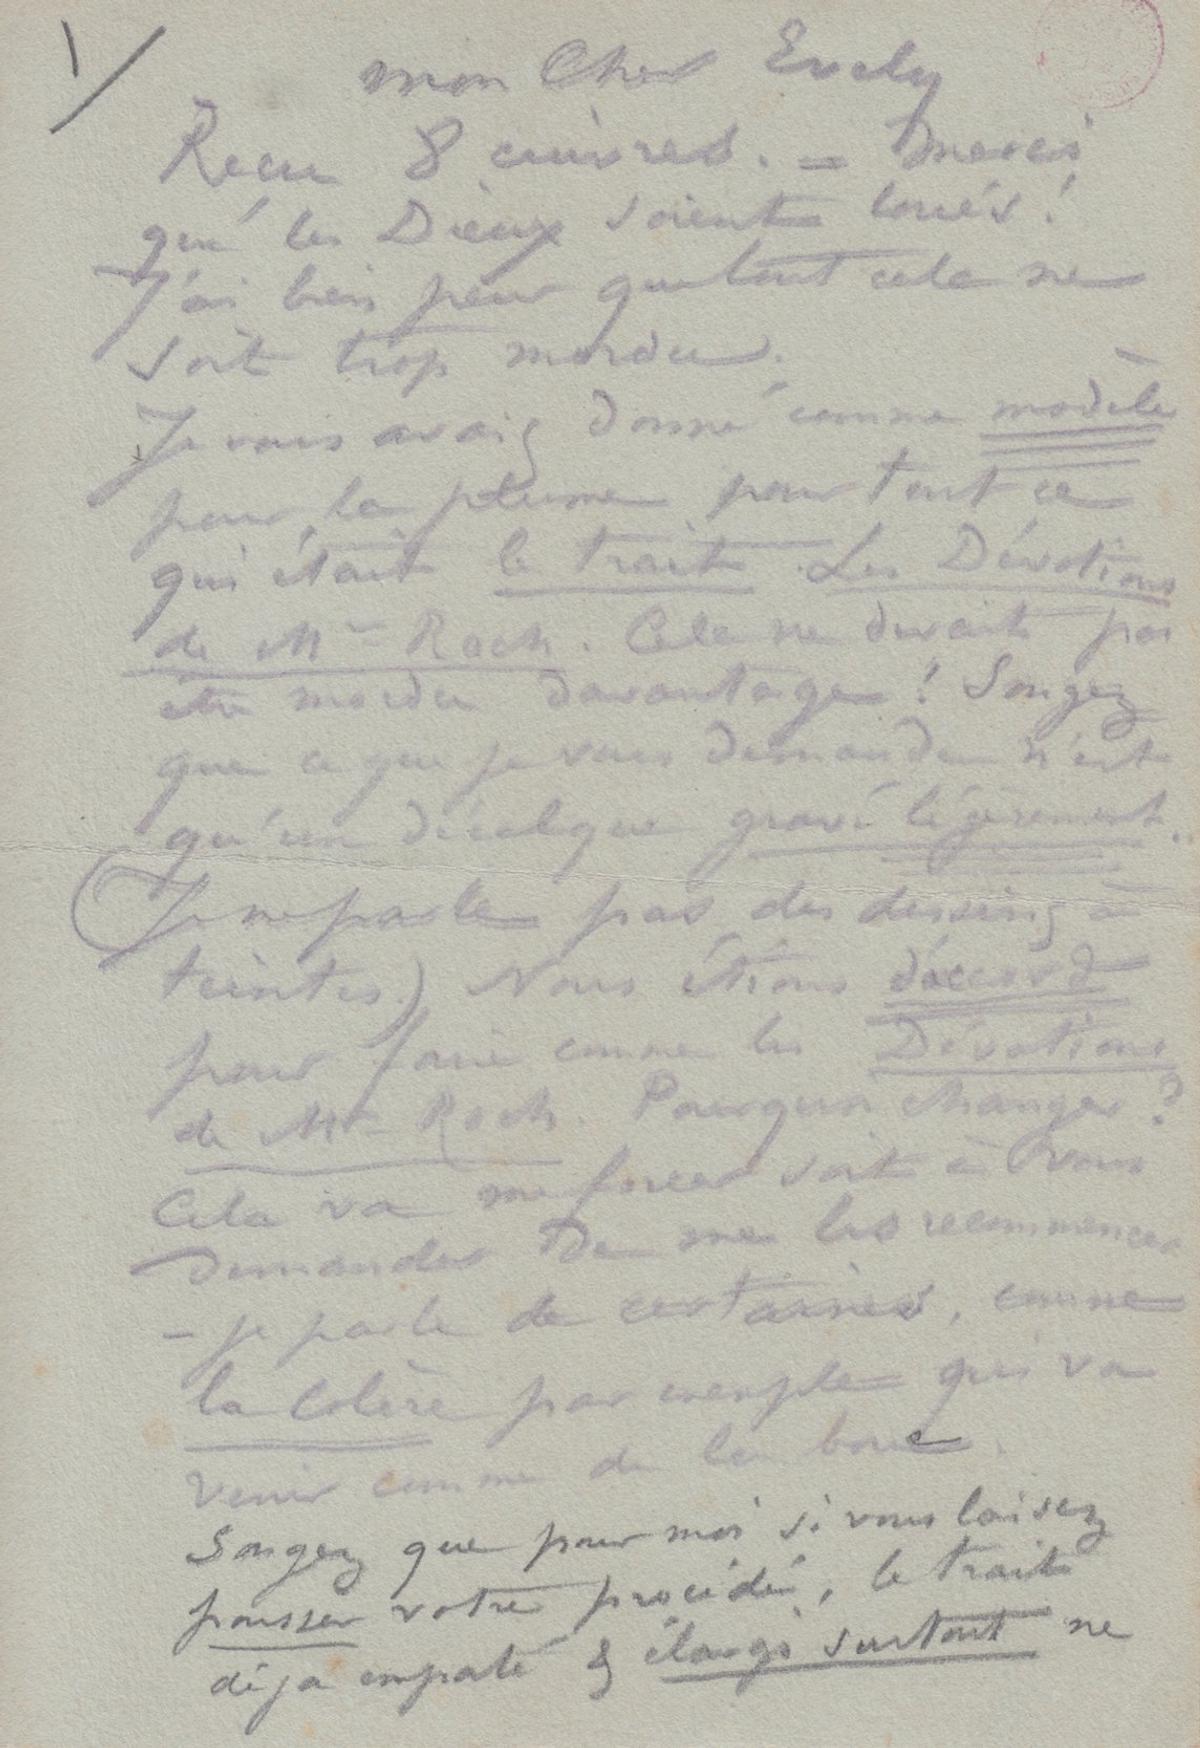 1/
mon Cher Evely
Recu 8 cuivres. = Merci
qué les Dieux soient loués!
J'ai bien peur que tout cela ne
soit trop mordu.
Je vous avais donné comme modèle
pour la plume pour tout ce
qui était le trait. Les Dévotions
de Mme Roch. Cela ne devait pas
être mordu davantage! Songez
que ce que je vous demande n'est
qu'un décalque gravé légèrement..
(Je ne parle pas des dessins à
teintes.) Nous étions d'accord
pour faire comme les Dévotions
de Mme Roch. Pourquoi changer?
Cela va me forcer soit à vous
demander de me les recommencer
- je parle de certaines, comme
la Colère par exemple qui va
venir comme de la boue.
Songez que pour moi si vous laisez
pousser votre procédé, le trait
déjà empaté & élargi surtout ne